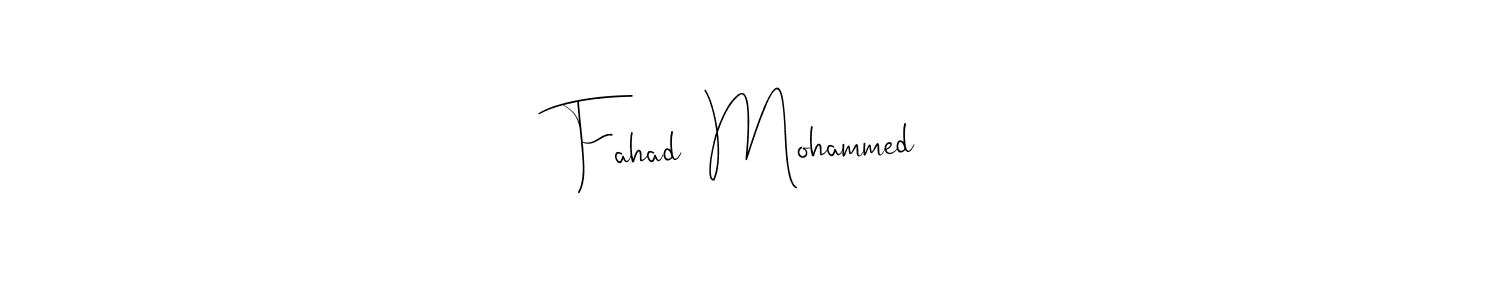 Fahad Mohammed